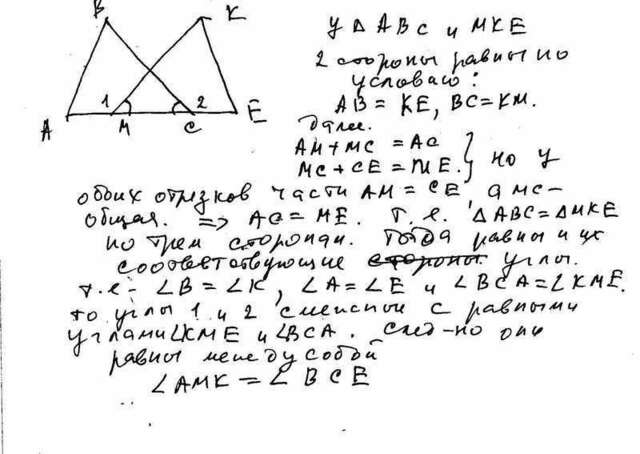 B K
A 1 M C 2 E
У △ ABC и MKE
2 стороны равны по
условию:
AB = KE, BC = KM.
далее.
AM + MC = AC
MC + CE = ME. } но у
обоих отрезков части AM = CE а MC -
общая. => AC = ME. т.е. △ABC = △MKE
по трем сторонам. Тогда равны и их
соответствующие стороны углы.
т.е. ∠B = ∠K, ∠A = ∠E и ∠BCA = ∠KME.
то углы 1 и 2 смежные с равными
углами ∠KME и ∠BCA. след-но они
равны между собой
∠AMK = ∠BCE